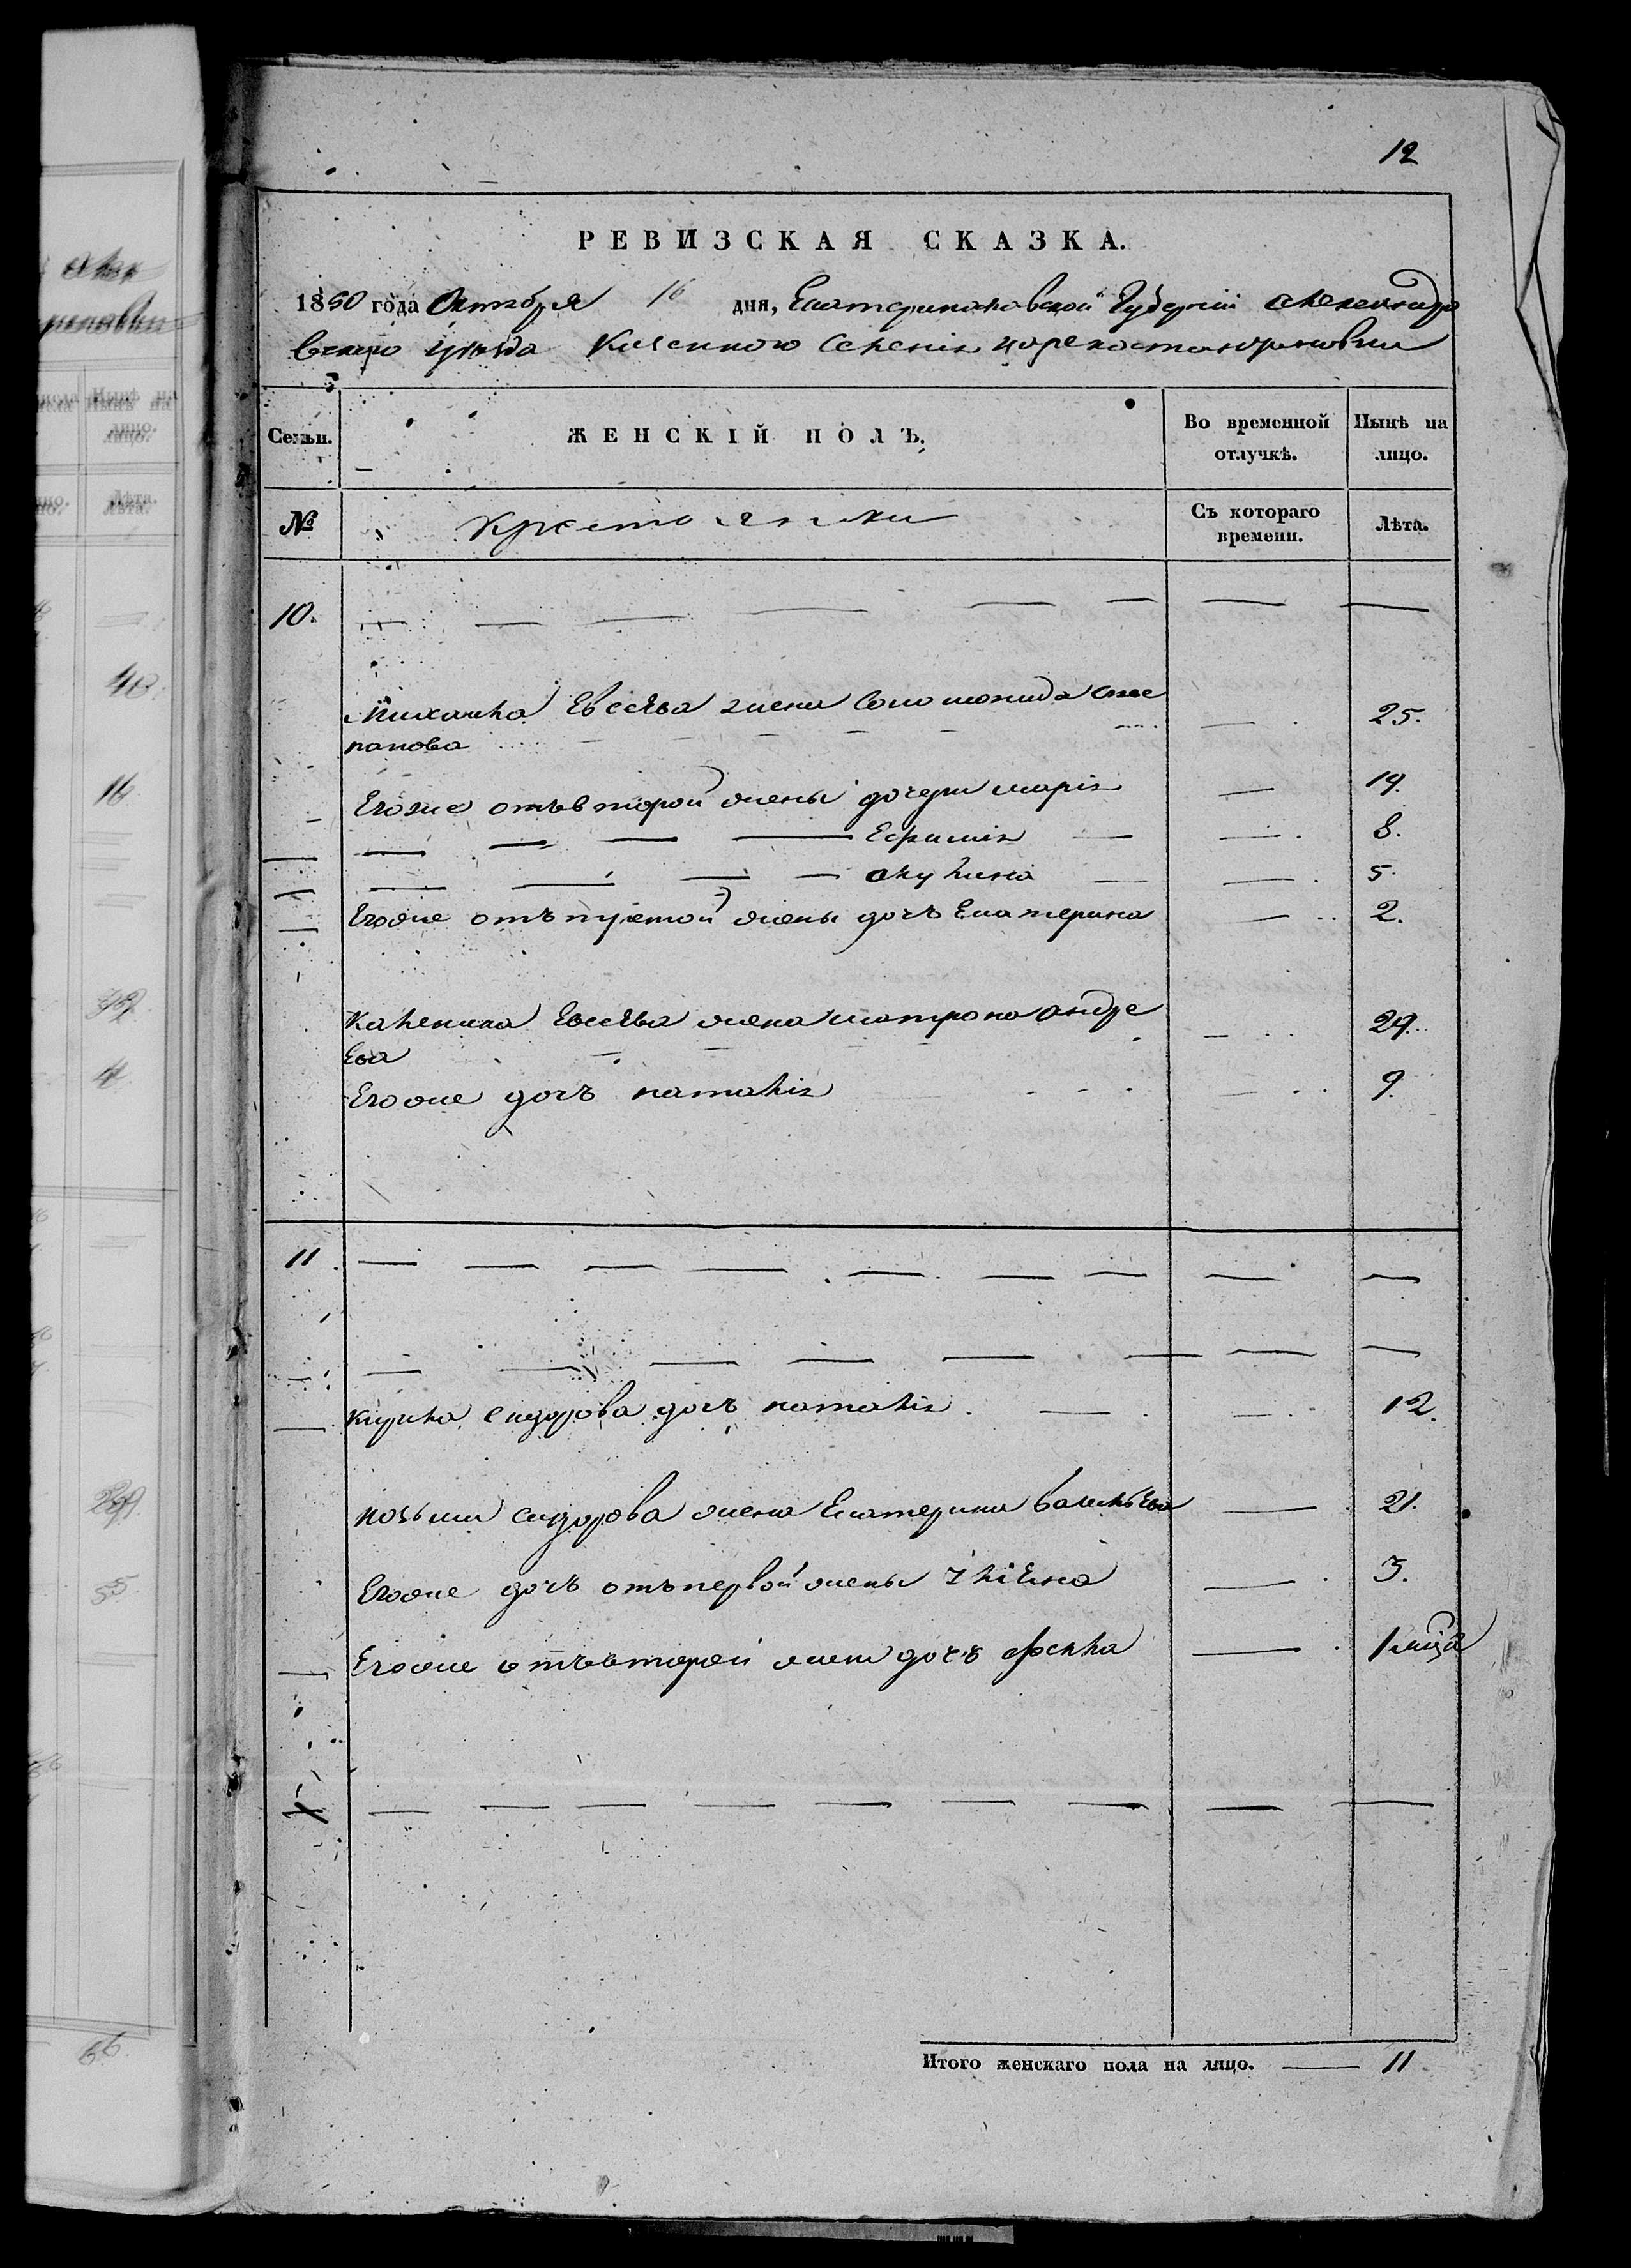 12
РЕВИЗСКАЯ СКАЗКА.
1850 года Октября 16 дня, Екатеринославской Губерніи Александро
вскаго уѣзда Казенного Селенія Цареконстантиновки
Семьи. ЖЕНСКІЙ ПОЛЪ. Во временной отлучкѣ. Нынѣ на лицо.
№ Крестьянки Съ котораго времени. Лѣта.
10.
Михайла Евсѣева жена Соломонида Сте 25.
панова
Егоже отъ второй жены дочери Марія 19.
Ефимія 8.
Акулина 5.
Егоже отъ третой жены дочь Екатерина 2.
Каленика Евсѣева жена Матрона Андре 29.
ева
Егоже дочь Наталія 9.
11
Кирила Сидорова дочь Наталія 12.
Козьми Сидорова жена Екатерина Васильева 21.
Егоже дочь отъ первой жены Уліена 3.
Егоже отъ второй жени дочь Фекла 1 мца
Итого женскаго пола на лицо. 11
40
16
4
29
55
66